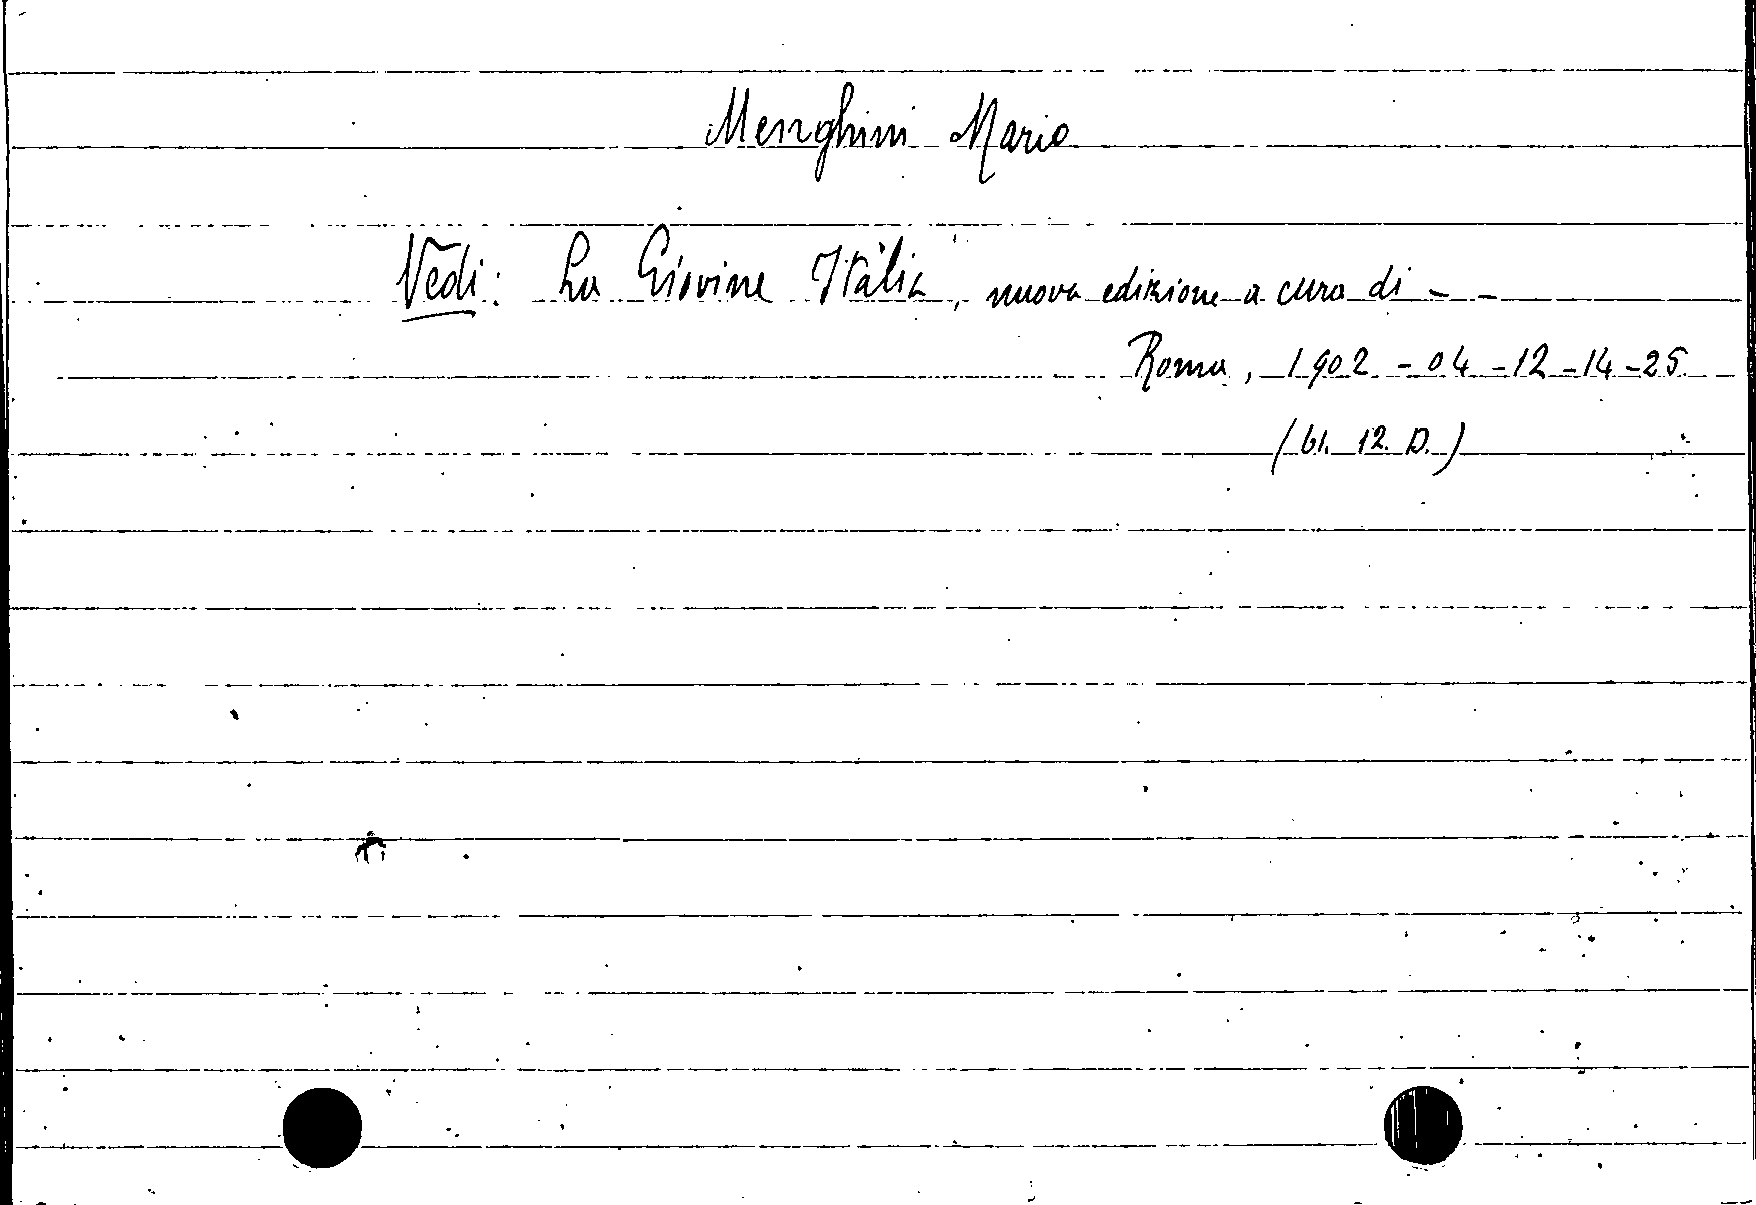 Menghini Mario
Vedi: La Giovine Italia, nuova edizione a cura di - -
Roma, 1902 - 04 - 12 - 14 - 25
(61. 12. D.)